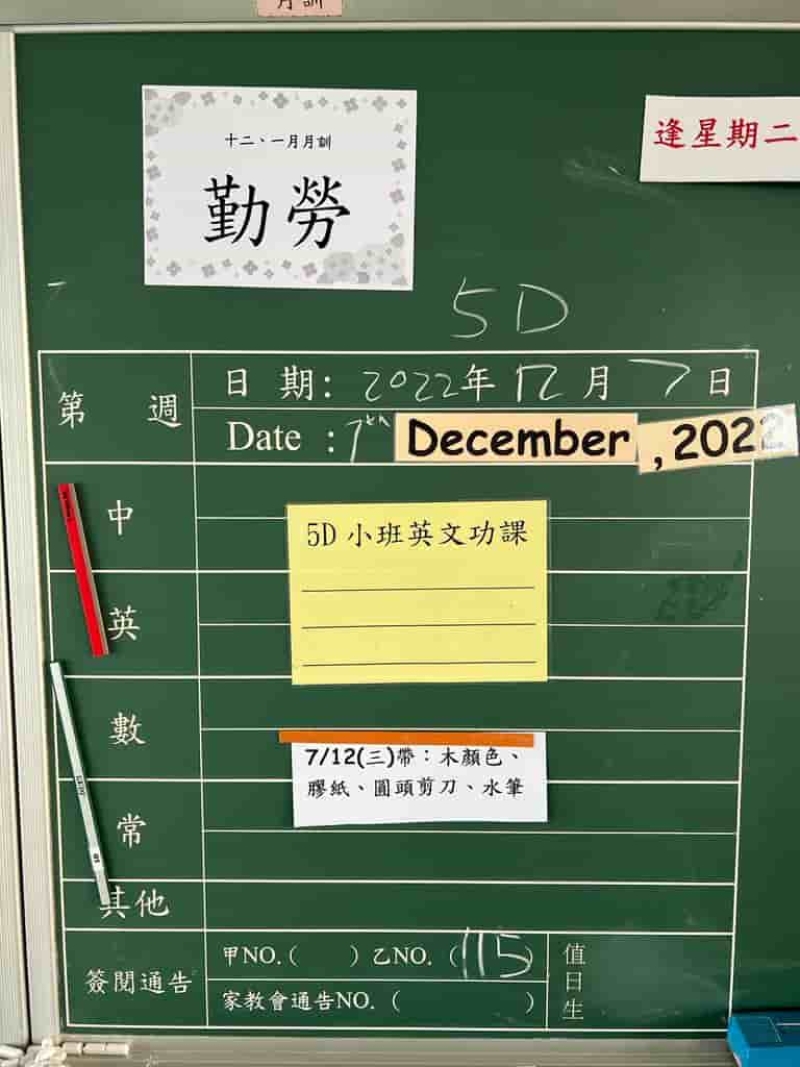 月訓
十二、一月月訓
勤勞
逢星期二
5D
第 週
日 期: 2022年 12月 7日
Date : 7th December, 2022
中
5D 小班英文功課
英
數
7/12(三)帶：木顏色、
膠紙、圓頭剪刀、水筆
常
其他
簽閱通告
甲NO.( ) 乙NO. (115)
家教會通告NO. ( )
值日生